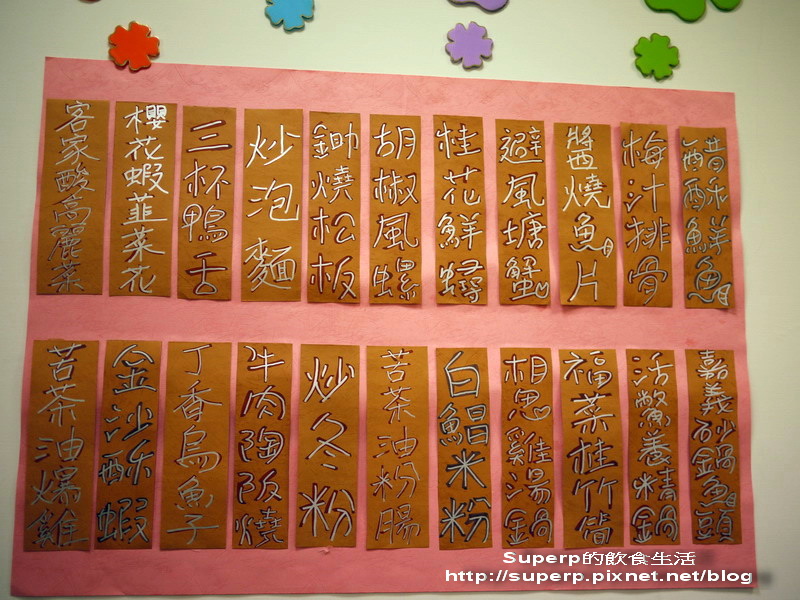 醋酥鮮魚
梅汁排骨
醬燒魚片
避風塘蟹
桂花鮮蟳
胡椒風螺
鋤燒松板
炒泡麵
三杯鴨舌
櫻花蝦韮菜花
客家酸高麗菜
嘉義砂鍋魚頭
活鱉養精鍋
福菜桂竹筍
相思雞湯鍋
白鯧米粉
苦茶油粉腸
炒冬粉
牛肉陶阪燒
丁香烏魚子
金沙酥蝦
苦茶油煸雞
Superp的飲食生活
http://superp.pixnet.net/blog